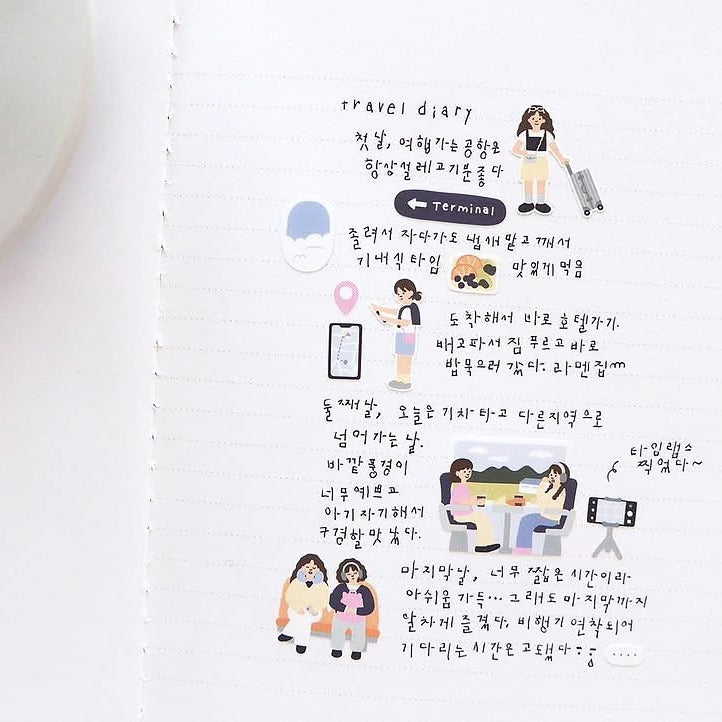 travel diary
첫날, 여행가는 공항은
항상 설레고 기분 좋다
Terminal
졸려서 자다가도 냄새 맡고 깨서
기내식 타임 맛있게 먹음
도착해서 바로 호텔가기.
배고파서 짐 푸르고 바로
밥 먹으러 갔다. 라멘집
둘째날, 오늘은 기차 타고 다른지역으로
넘어가는 날.
바깥 풍경이
너무 예쁘고
아기자기해서
구경할 맛 났다.
타임랩스
찍었다~
마지막날, 너무 짧은 시간이라
아쉬움 가득... 그래도 마지막까지
알차게 즐겼다. 비행기 연착되어
기다리는 시간은 고됐다;;
....